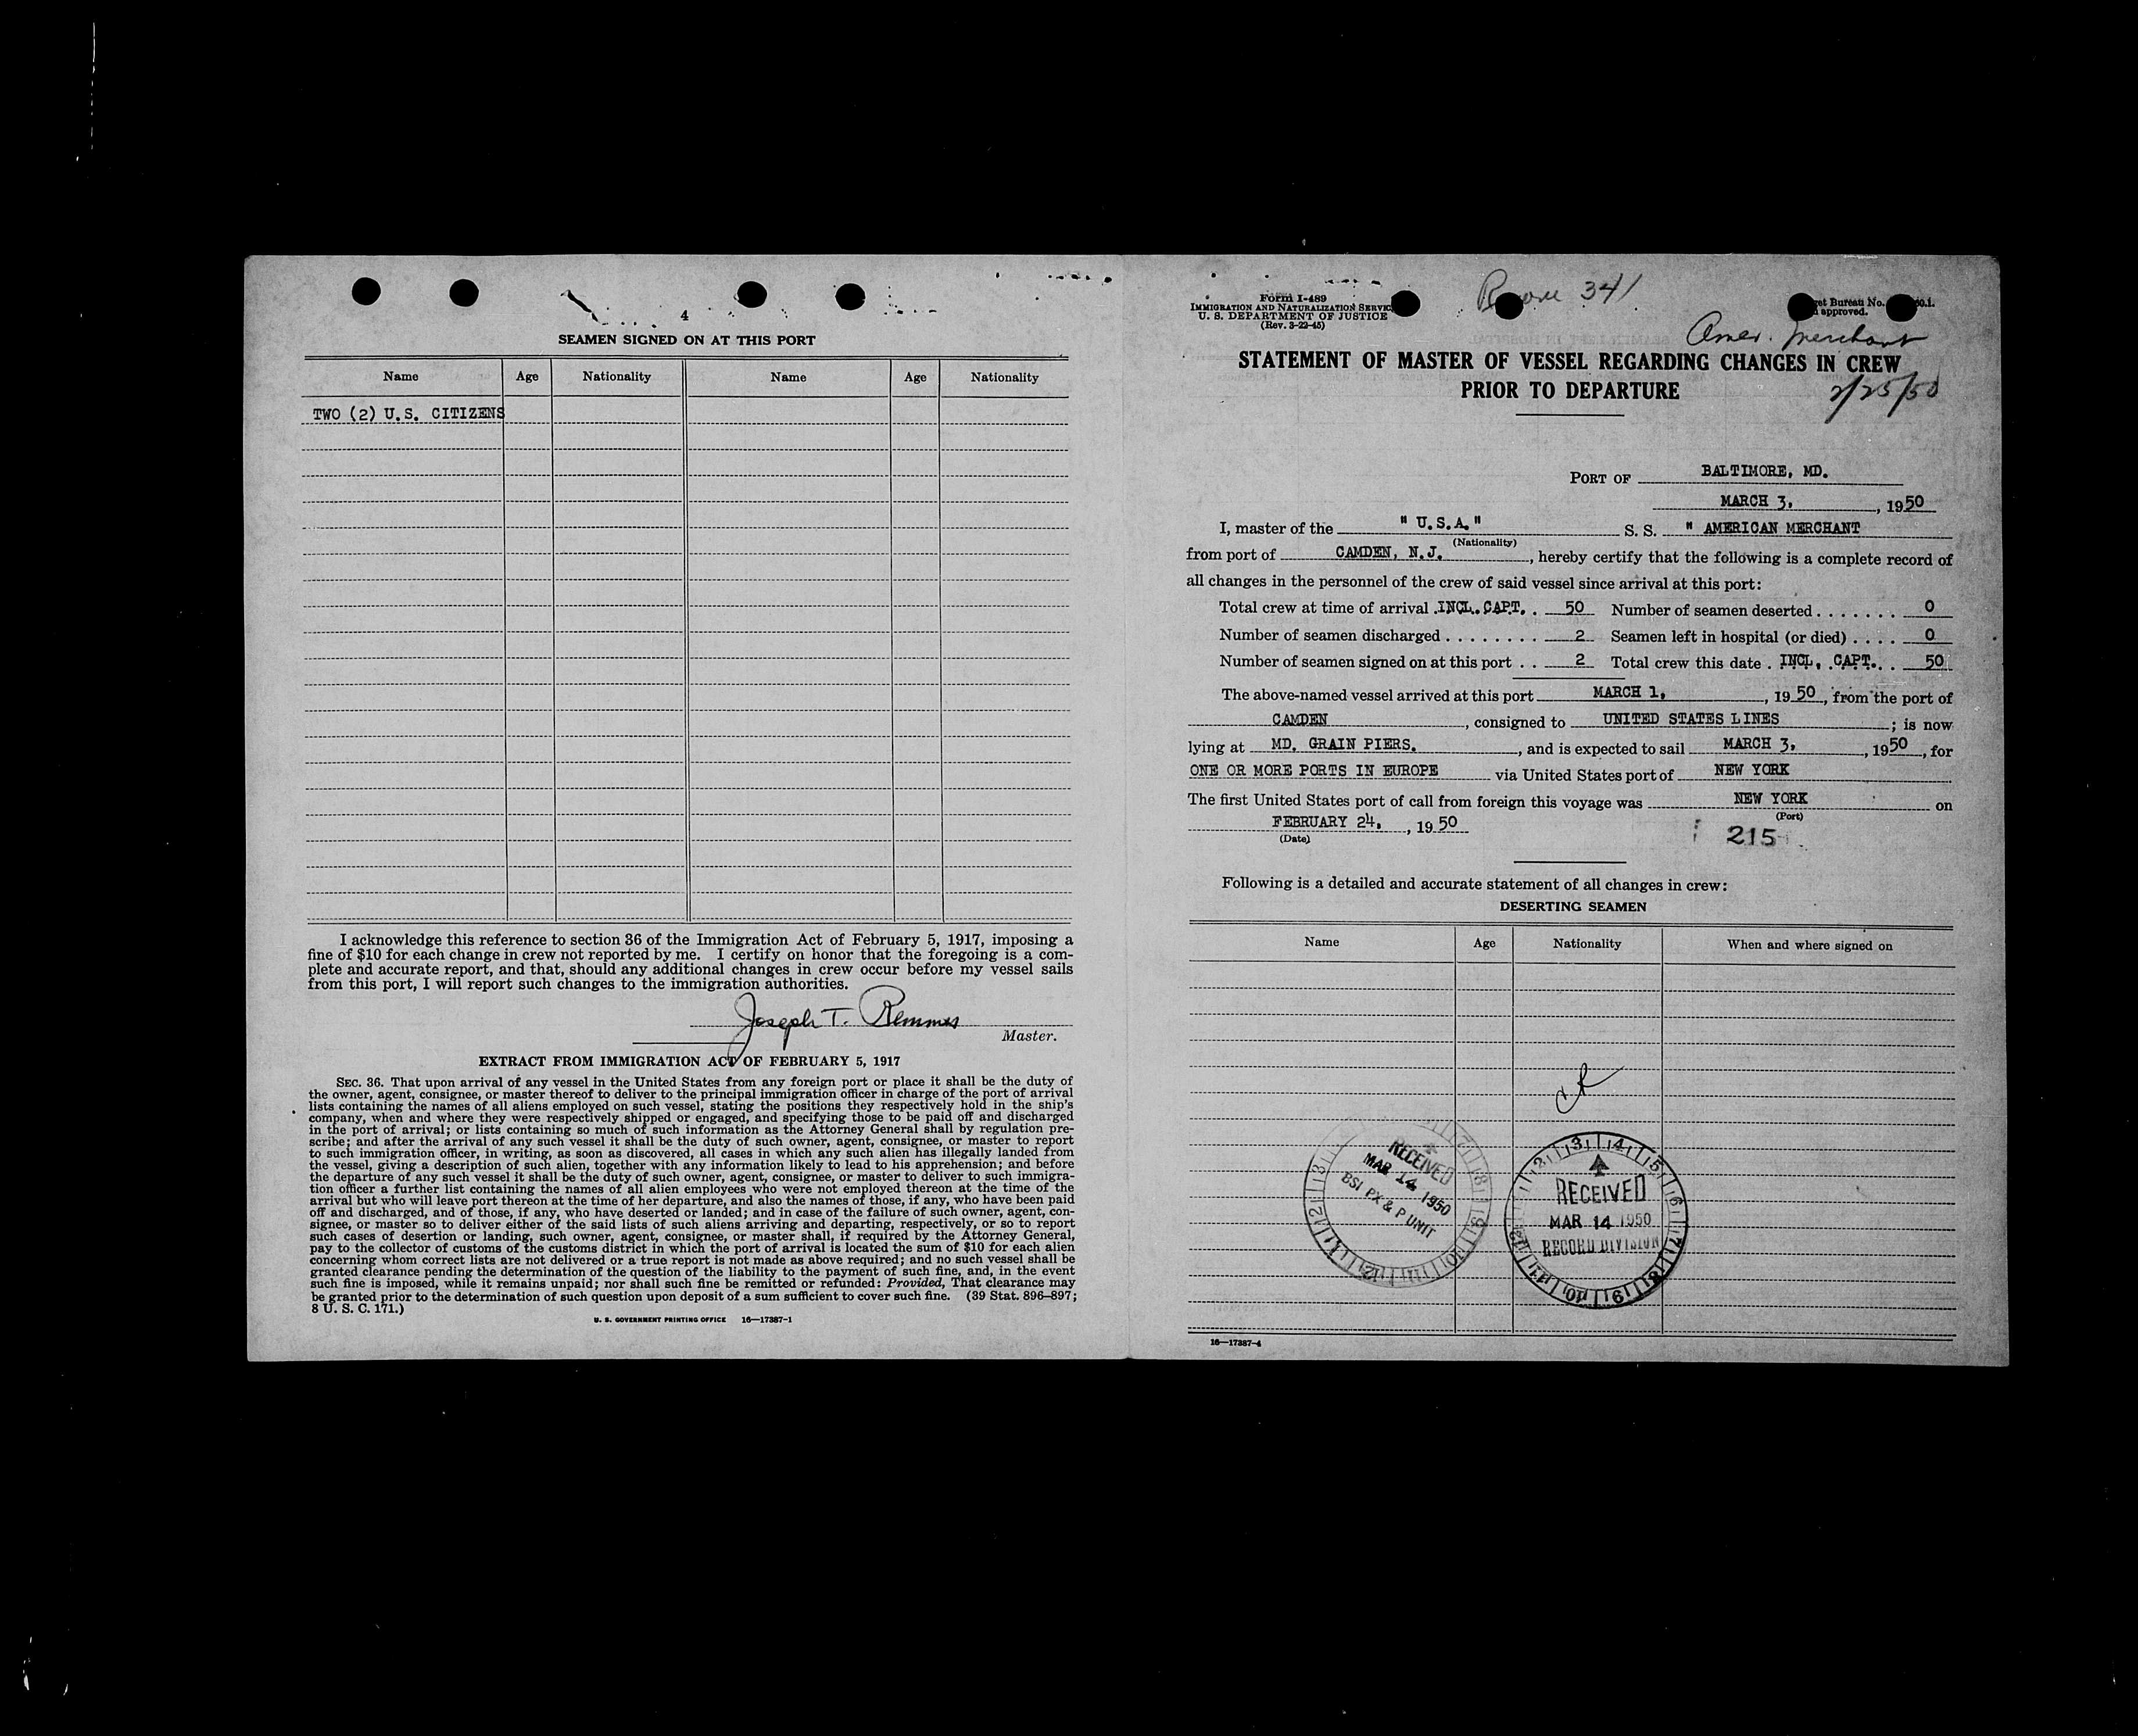 4
SEAMEN SIGNED ON AT THIS PORT
Name Age Nationality Name Age Nationality
TWO (2) U.S. CITIZENS
I acknowledge this reference to section 36 of the Immigration Act of February 5, 1917, imposing a
fine of $10 for each change in crew not reported by me. I certify on honor that the foregoing is a com-
plete and accurate report, and that, should any additional changes in crew occur before my vessel sails
from this port, I will report such changes to the immigration authorities.
Joseph T. Remmes
Master.
EXTRACT FROM IMMIGRATION ACT OF FEBRUARY 5, 1917
SEC. 36. That upon arrival of any vessel in the United States from any foreign port or place it shall be the duty of
the owner, agent, consignee, or master thereof to deliver to the principal immigration officer in charge of the port of arrival
lists containing the names of all aliens employed on such vessel, stating the positions they respectively hold in the ship's
company, when and where they were respectively shipped or engaged, and specifying those to be paid off and discharged
in the port of arrival; or lists containing so much of such information as the Attorney General shall by regulation pre-
scribe; and after the arrival of any such vessel it shall be the duty of such owner, agent, consignee, or master to report
to such immigration officer, in writing, as soon as discovered, all cases in which any such alien has illegally landed from
the vessel, giving a description of such alien, together with any information likely to lead to his apprehension; and before
the departure of any such vessel it shall be the duty of such owner, agent, consignee, or master to deliver to such immigra-
tion officer a further list containing the names of all alien employees who were not employed thereon at the time of the
arrival but who will leave port thereon at the time of her departure, and also the names of those, if any, who have been paid
off and discharged, and of those, if any, who have deserted or landed; and in case of the failure of such owner, agent, con-
signee, or master so to deliver either of the said lists of such aliens arriving and departing, respectively, or so to report
such cases of desertion or landing, such owner, agent, consignee, or master shall, if required by the Attorney General,
pay to the collector of customs of the customs district in which the port of arrival is located the sum of $10 for each alien
concerning whom correct lists are not delivered or a true report is not made as above required; and no such vessel shall be
granted clearance pending the determination of the question of the liability to the payment of such fine, and, in the event
such fine is imposed, while it remains unpaid; nor shall such fine be remitted or refunded: Provided, That clearance may
be granted prior to the determination of such question upon deposit of a sum sufficient to cover such fine. (39 Stat. 896-897;
8 U. S. C. 171.)
U. S. GOVERNMENT PRINTING OFFICE 16—17387-1
Form I-489
IMMIGRATION AND NATURALIZATION SERVIC
U. S. DEPARTMENT OF JUSTICE
(Rev. 3-22-45)
341
et Bureau No.
approved.
Amer. Merchant
STATEMENT OF MASTER OF VESSEL REGARDING CHANGES IN CREW
PRIOR TO DEPARTURE
2/25/50
PORT OF BALTIMORE, MD.
MARCH 3, , 1950
I, master of the " U.S.A." S. S. " AMERICAN MERCHANT
(Nationality)
from port of CAMDEN, N.J. , hereby certify that the following is a complete record of
all changes in the personnel of the crew of said vessel since arrival at this port:
Total crew at time of arrival INCL. CAPT. 50 Number of seamen deserted 0
Number of seamen discharged 2 Seamen left in hospital (or died) 0
Number of seamen signed on at this port 2 Total crew this date INCL. CAPT. 50
The above-named vessel arrived at this port MARCH 1, , 1950, from the port of
CAMDEN , consigned to UNITED STATES LINES ; is now
lying at MD. GRAIN PIERS. , and is expected to sail MARCH 3, , 1950, for
ONE OR MORE PORTS IN EUROPE via United States port of NEW YORK
The first United States port of call from foreign this voyage was NEW YORK on
(Port)
FEBRUARY 24, , 1950
(Date)
215
Following is a detailed and accurate statement of all changes in crew:
DESERTING SEAMEN
Name Age Nationality When and where signed on
RECEIVED
MAR 14 1950
BSI PX & P UNIT
RECEIVED
MAR 14 1950
RECORD DIVISION
16—17387-4